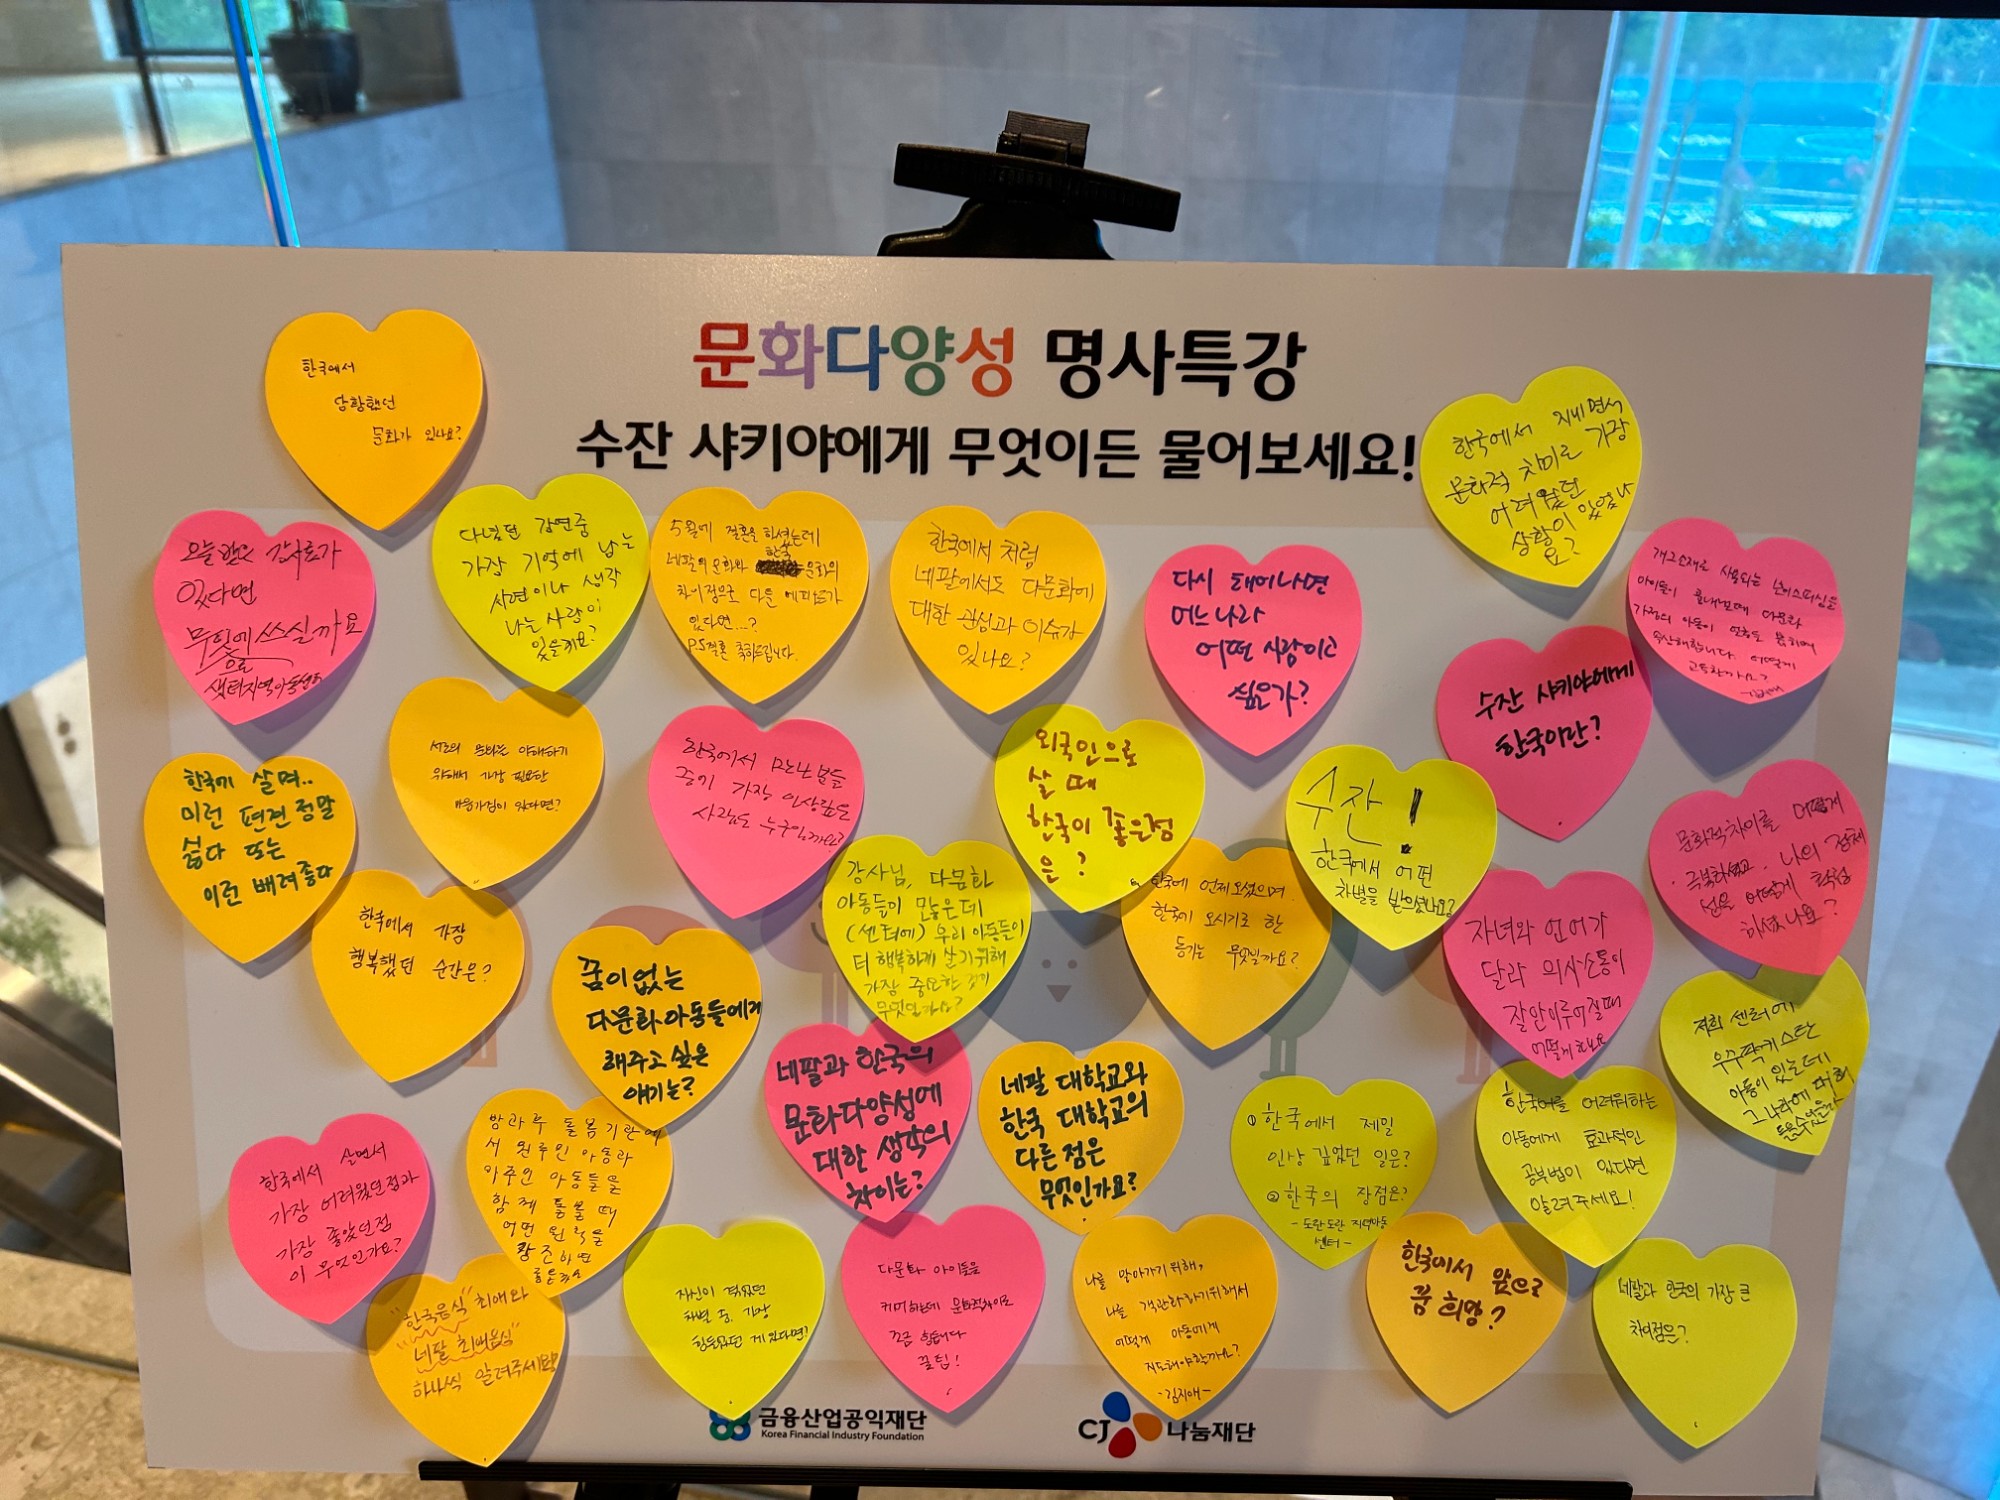 문화다양성 명사특강
수잔 샤키야에게 무엇이든 물어보세요!
한국에서
당황했던
문화가 있나요?
한국에서 지내면서
문화적 차이로 가장
어려웠던
상황이 있었나
요?
오늘 받은 강사료가
있다면
무엇에 쓰실까요
으로
샘터지역아동센터
다녔던 강연중
가장 기억에 남는
사연이나 생각
나는 사람이
있을까요?
5월에 결혼을 하셨는데
한국
네팔의 문화와 문화의
차이점으로 다른 에피소드가
있다면...?
P.S 결혼 축하드립니다.
한국에서 처럼
네팔에서도 다문화에
대한 관심과 이슈가
있나요?
다시 태어나면
어느 나라
어떤 사람이고
싶은가?
수잔 샤키야에게
한국이란?
개그소재로 사용되는
아이들이 다문화
가정의 아동이
속상해합니다. 어떻게
한국에 살며..
이런 편견 정말
싫다 또는
이런 배려 좋다
서로의 문화를 이해하기
위해서 가장 필요한
마음가짐이 있다면?
한국에서 만난 분들
중에 가장 인상깊은
사람은 누구입니까?
외국인으로
살 때
한국이 좋은점
은?
수잔!
한국에서 어떤
차별을 받으셨나요?
문화적차이를 어떻게
극복하셨고. 나의 정체
성은 어떻게 확립
하셨나요?
한국에서 가장
행복했던 순간은?
꿈이없는
다문화아동들에게
해주고 싶은
얘기는?
강사님, 다문화
아동들이 많은데
(센터에) 우리 아동들이
더 행복하게 살기 위해
가장 중요한 것이
무엇일까요?
한국에 언제 오셨으며
한국에 오시기로 한
동기는 무엇일까요?
자녀와 언어가
달라 의사소통이
잘안이루어질때
어떻게 하나요
저희 센터에
우즈벡키스탄
아동이 있는데
그 나라에 대해
한국에서 살면서
가장 어려웠던점과
가장 좋았던점
이 무엇인가요?
방과후 돌봄기관에
서 원주민 아동과
이주민 아동들을
함께 돌볼 때
어떤 원칙을
존중하면
좋은가요
네팔과 한국의
문화다양성에
대한 생각의
차이는?
네팔 대학교와
한국 대학교의
다른점은
무엇인가요?
① 한국에서 제일
인상 깊었던 일은?
② 한국의 장점은?
- 도란도란 지역아동
센터 -
한국어를 어려워하는
아동에게 효과적인
공부법이 있다면
알려주세요!
"한국음식" 최애와
"네팔 최애음식"
하나씩 알려주세요
자신이 겪었던
차별 중, 가장
힘들었던 게 있다면?
다문화 아이들을
케어하는데 문화적차이로
조금 힘듭니다
꿀팁!
나를 알아가기위해,
나를 객관화하기위해서
어떻게 아동에게
지도해야할까요?
-김지애-
한국에서 앞으로
꿈 희망?
네팔과 한국의 가장 큰
차이점은?
금융산업공익재단
Korea Financial Industry Foundation
CJ 나눔재단